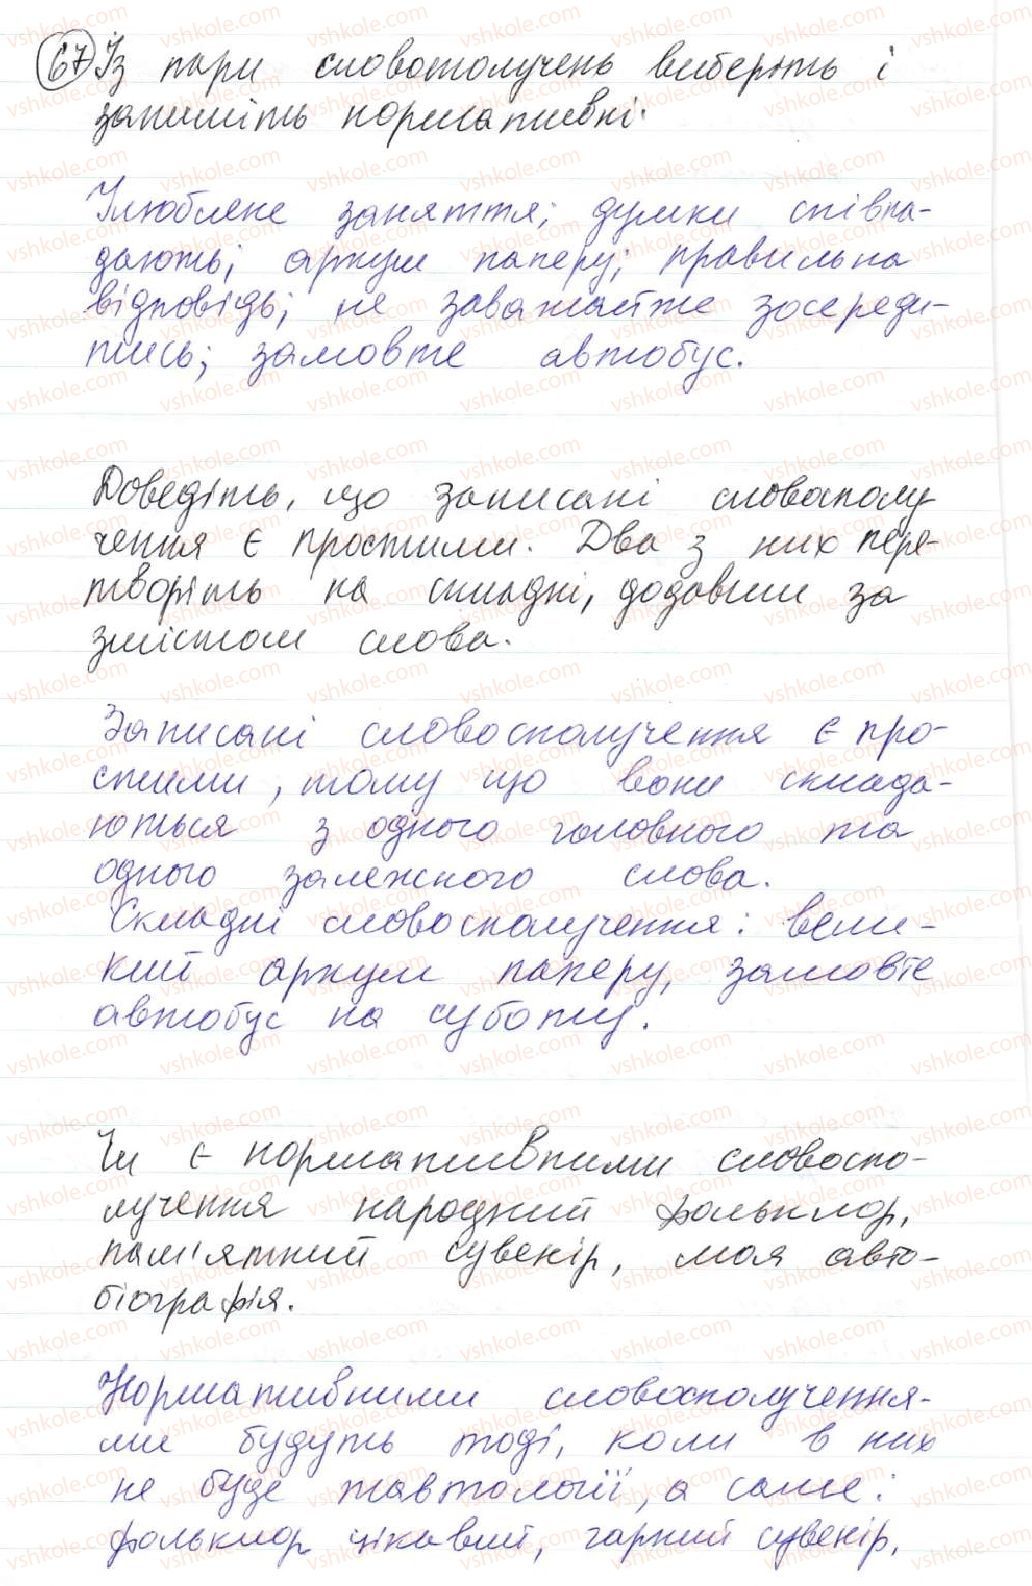 67 Із пари словосполучень виберіть і
запишіть нормативні.
Улюблене заняття; думки співпа-
дають; аркуш паперу; правильна
відповідь; не заважайте зосереди-
тись; замовте автобус.
Доведіть, що записані словосполу
чення є простими. Два з них пере-
творіть на складні, додавши за
змістом слова.
Записані словосполучення є про-
стими, тому що вони склада-
ються з одного головного та
одного залежного слова.
Складні словосполучення: вели-
кий аркуш паперу, замовте
автобус на суботу.
Чи є нормативними словоспо-
лучення народний фольклор,
пам'ятний сувенір, моя авто-
біографія.
Нормативними словосполучення-
ми будуть тоді, коли в них
не буде тавтології, а саме:
фольклор цікавий, гарний сувенір,